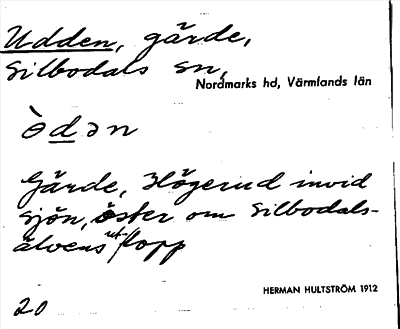 Udden, gärde,
Silbodals sn,
Nordmarks hd, Värmlands län
ə̀dən
Gärde, Högerud invid
sjön, öster om Silbodals-
älvens utlopp
HERMAN HULTSTRÖM 1912
20